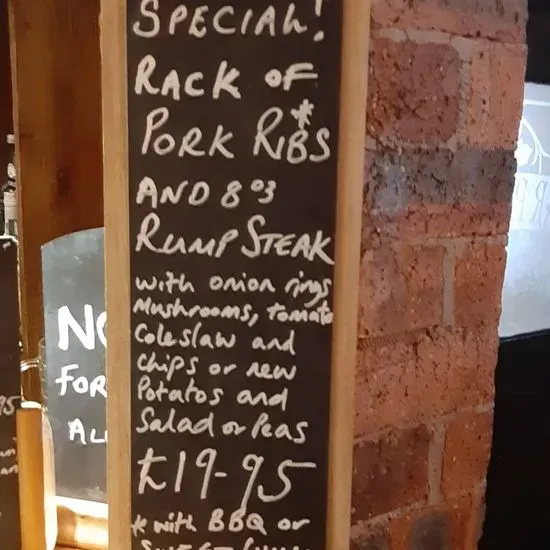 SPECIAL!
RACK OF
PORK RIBS*
AND 8oz
RUMP STEAK
with onion rings
Mushrooms, tomato
Coleslaw and
chips or new
Potatos and
Salad or Peas
£19-95
* with BBQ or
NO
FOR
AL
95